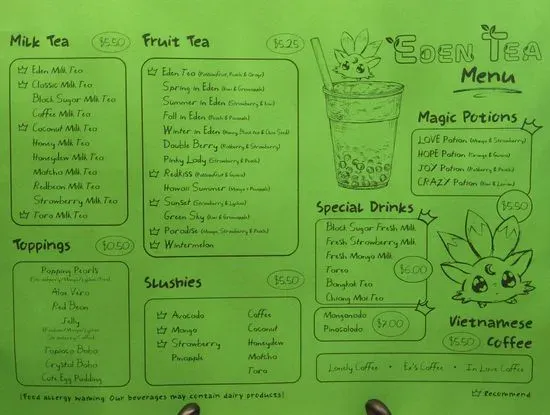 Milk Tea $5.50
Eden Milk Tea
Classic Milk Tea
Black Sugar Milk Tea
Coffee Milk Tea
Coconut Milk Tea
Honey Milk Tea
Honeydew Milk Tea
Matcha Milk Tea
Redbean Milk Tea
Strawberry Milk Tea
Taro Milk Tea
Toppings $0.50
Popping Pearls
Aloe Vera
Red Bean
Jelly
Tapioca Boba
Crystal Boba
Cute Egg Pudding
Fruit Tea $5.25
Eden Tea (Passionfruit, Peach & Grape)
Spring in Eden (Kiwi & Greenapple)
Summer in Eden (Strawberry & Kiwi)
Fall in Eden (Peach & Pineapple)
Winter in Eden (Honey, Black tea & Chia Seed)
Double Berry (Rasberry & Strawberry)
Pinky Lady (Strawberry & Peach)
Redkiss (Passionfruit & Guava)
Hawaii Summer (Mango & Pineapple)
Sunset (Strawberry & Lychee)
Green Sky (Kiwi & Greenapple)
Paradise (Mango, Strawberry & Peach)
Wintermelon
Slushies $5.50
Avocado
Mango
Strawberry
Pineapple
Coffee
Coconut
Honeydew
Matcha
Taro
EDEN TEA
Menu
Magic Potions
LOVE Potion (Mango & Strawberry)
HOPE Potion (Orange & Guava)
JOY Potion (Rasberry & Peach)
CRAZY Potion (Kiwi & Lemon)
$5.50
Special Drinks
Black Sugar Fresh Milk
Fresh Strawberry Milk
Fresh Mango Milk
Tareo
Bangkok Tea
Chiang Mai Tea
$6.00
Manganada
Pinacolada
$7.00
Vietnamese
$5.50 Coffee
Lonely Coffee • Ex's Coffee • In Love Coffee
Recommend
(Food allergy warning: Our beverages may contain dairy products)